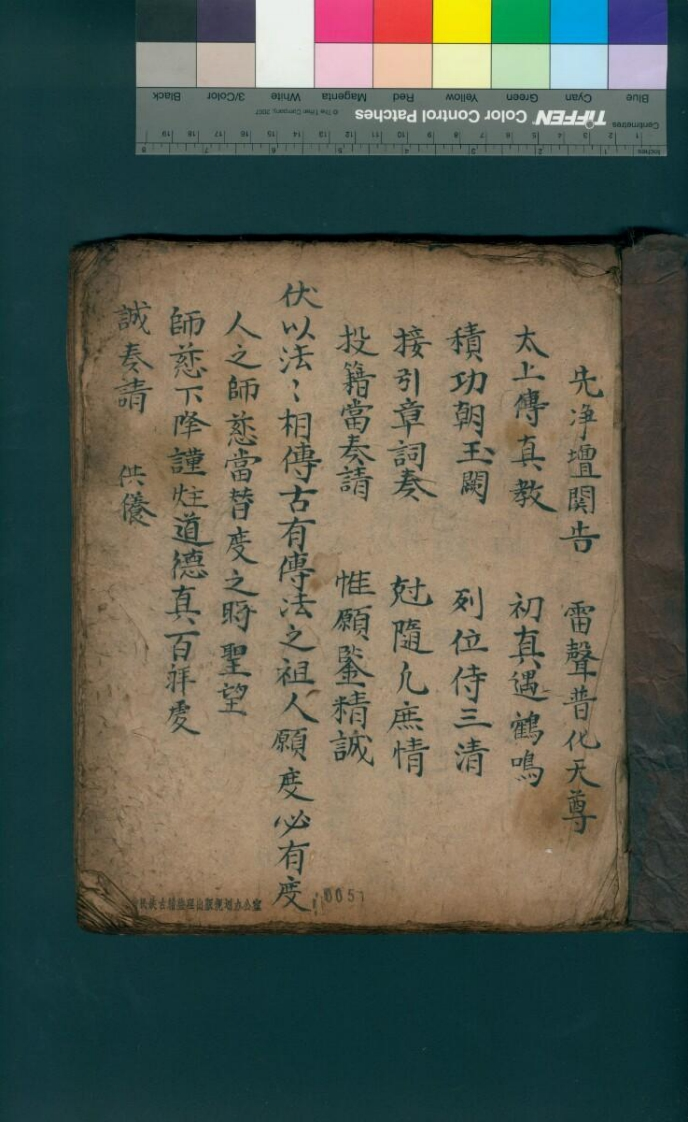 先净壇関告　雷聲普化天尊
太上傳真教　初真遇鶴鳴
積功朝玉闕　列位侍三清
接引章詞奏　尅隨凢庶情
投籍當奏請　惟願鑒精誠
伏以法〻相傳古有傳法之祖人願度必有度
人之師慈當替度之時聖望
師慈下降謹炷道德真百拜虔
誠奏請　供養
0051
Blue
Cyan
Green
Yellow
Red
Magenta
White
3/Color
Black
TIFFEN Color Control Patches
© The Tiffen Company, 2007
Centimetres
Inches